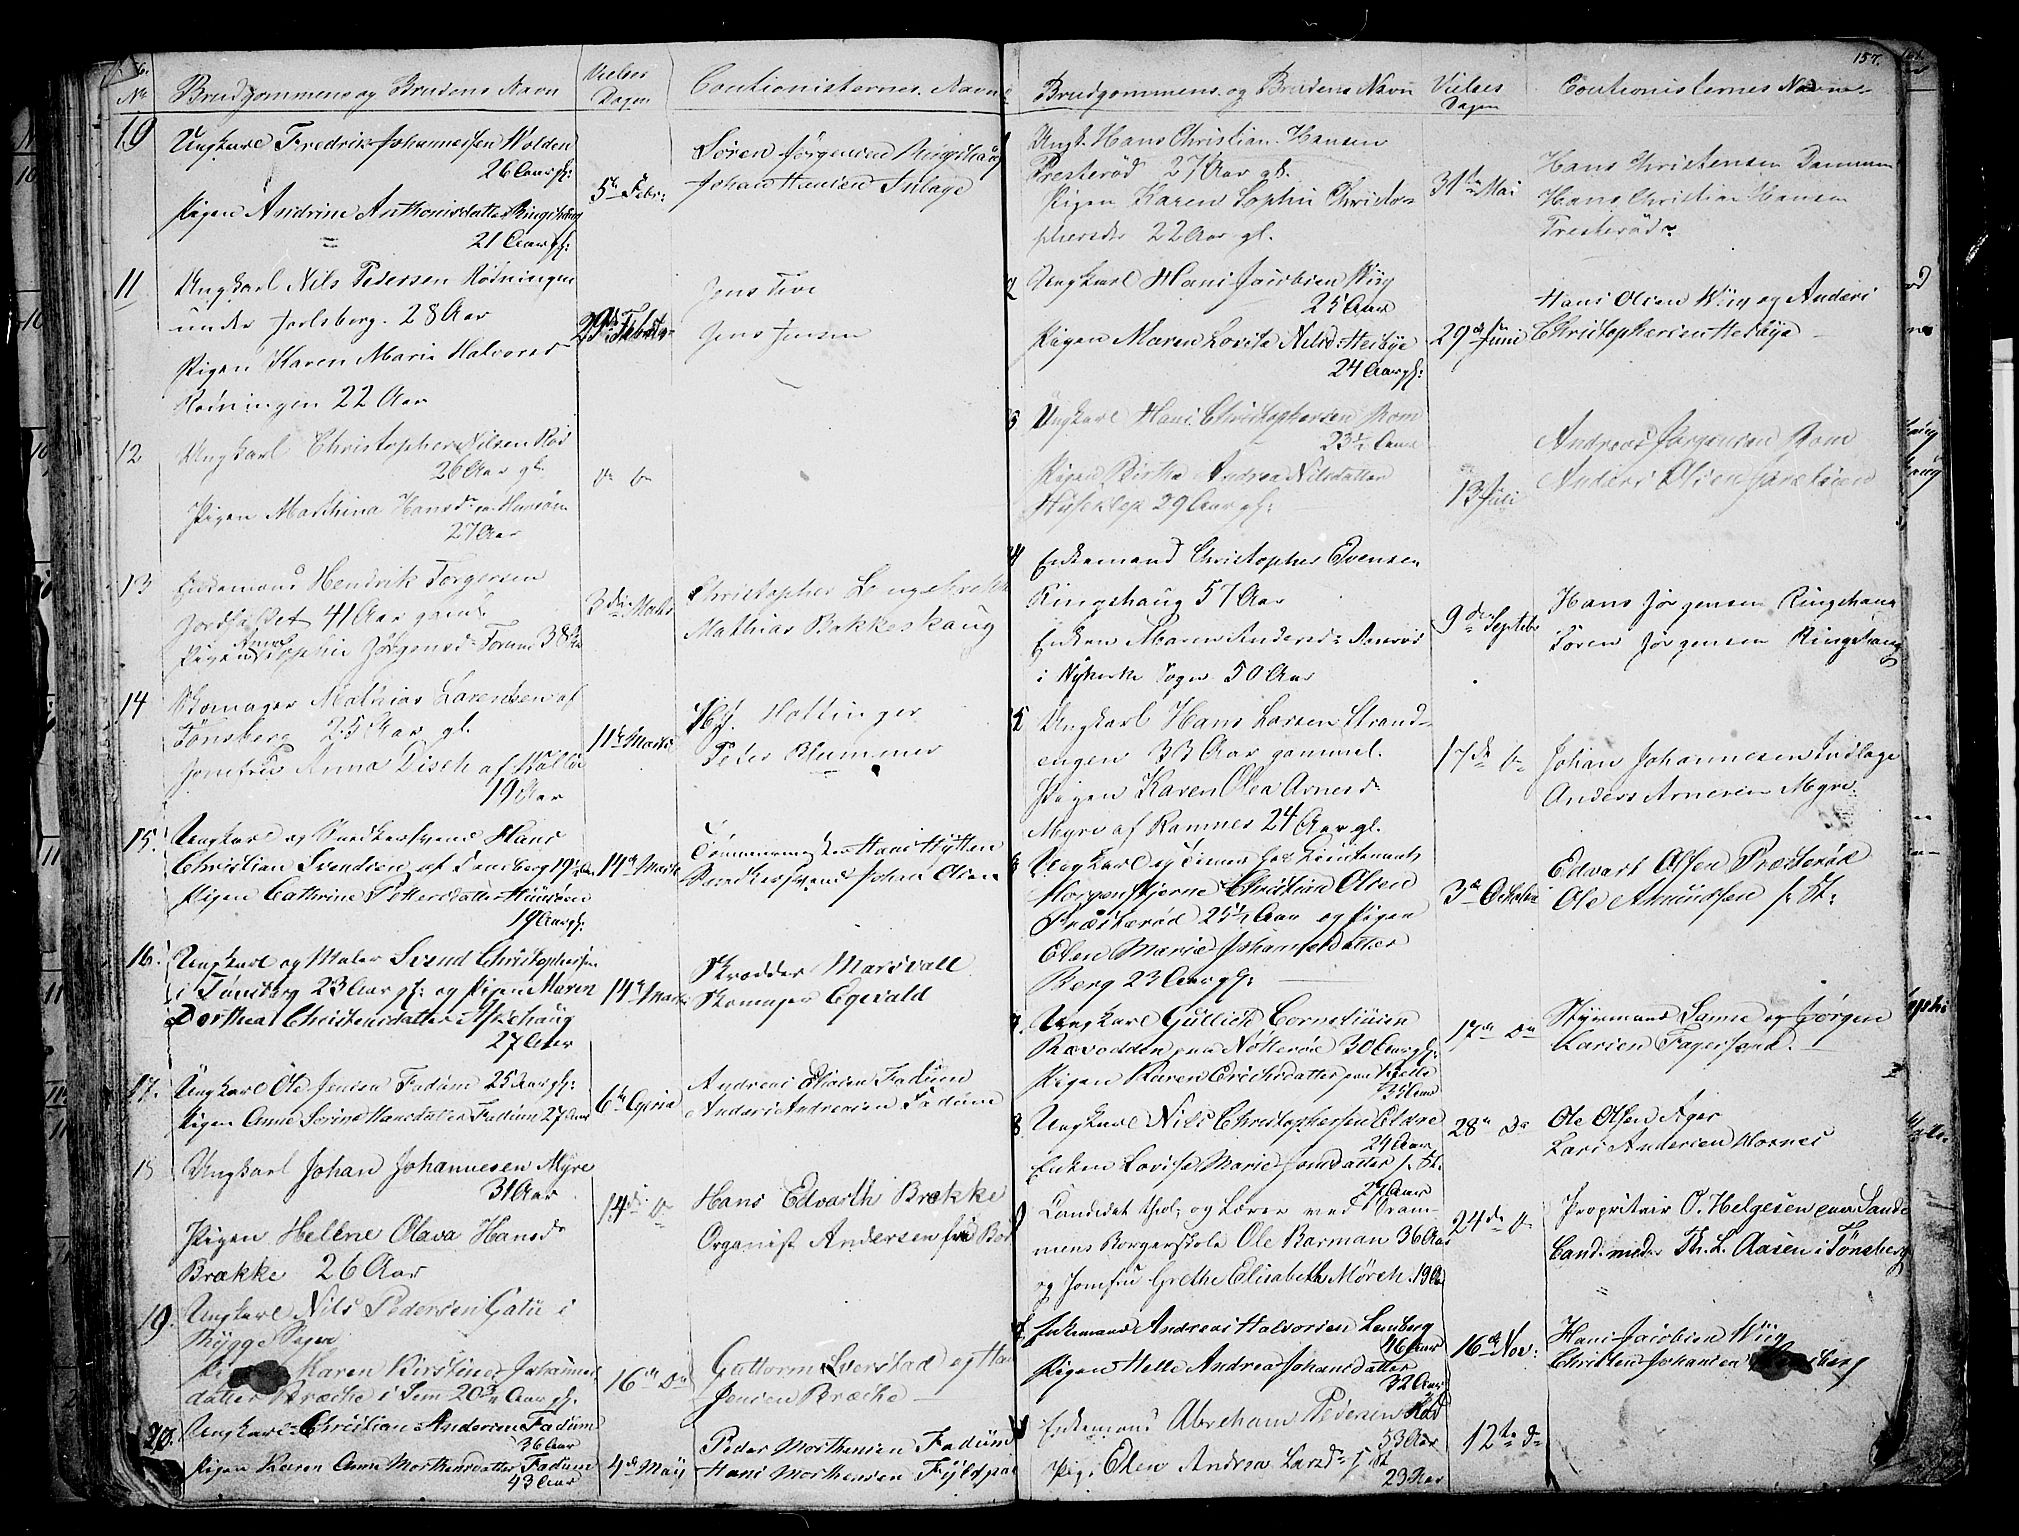 No
Brudgommens og Brudens Navn
Vielses
Dagen
Coutionisternes Navne
10
Ungkarl Fredrik Johannessen Wolden
26 Aar gl:
Pigen Andrine Anthonisdatter Ringshaug
21 Aar gl:
5te Febr:
Søren Jørgensen Ringshaug
Johan Hansen Inlage
11
Ungkarl Nils Pedersen Rødningen
under Jarlsberg. 28 Aar
Pigen Karen Marie Halvorsd
Rødningen 22 Aar
29de Febr
Jens Tve
Jens Jensen
12
Ungkarl Christopher Nilsen Rød
26 Aar gl.
Pigen Mathina Hansd
27 Aar
13
Enkemand Hendrik Torgersen
41 Aar gaml
Pigen Anne Sophie Jørgensd Foram 38 Aar
3die Marts
Christopher
Mathias Bakkeskaug
14
Skomager Mathias Larentsen af
Tønsberg 25 Aar gl.
Jomfru Anna Disch af
19 Aar
11te Marts
Hf. Hottinger
Peter Blummer
15.
Ungkarl og Snedkersvend Hans
Christian Svendsen af Tønsberg 19 Aar
Pigen Cathrine Pettersdatter
19 Aar gl:
14de Marts
Tømmermester Hans Hytten
Snedkersvend Johan Olsen
16.
Ungkarl og Maler Svend Christophersen
i Tønsberg 23 Aar gl: og Pigen Maren
Dorthea Christensdatter Askehaug
27 Aar
14de Marts
Skrædder Marsvall
Skomager Egevald
17.
Ungkarl Ole Jensen Fadum 25 Aar gl:
Pigen Anne Sorine Hansdatter Fadum 27 Aar
6te April
Andreas Olsen Fadum
Anders Andresen Fadum
18
Ungkarl Johan Johannesen Myre
31 Aar
Pigen Hellene Olava Hansd
Brække 26 Aar
14de
Hans Edvarth Brække
Organist Andersen fra
19.
Ungkarl Nils Pedersen Gatu i
Rygge Sogn
Karen Kirstine Johannes
datter Bræche i Sem 20 Aar gl.
16de Do
Guttorm Sverstad og Hans
Jensen Bræche
20.
Ungkarl Christian Andersen Fadum
36 Aar
Pigen Karen Anne Morthensdatter Fadum
43 Aar
4de May
Peder Morthensen Fadum
Hans Morthensen Fyldpaa
157.
Brudgommens og Brudens Navn
Vielses
Dagen
Coutionisternes Navne
Ungk. Hans Christian Hansen
Presterød 27 Aar gl.
Pigen Karen Sophie Christo-
phersdr 22 Aar gl.
31te Mai
Hans Christensen Dammen
Hans Christian Hansen
Presterød
2
Ungkarl Hans Jacobsen Wiig
25 Aar
Pigen Maren Lovise Nilsd Hesbye
24 Aar gl:
29de Juni
Hans Olsen Wiig og Anders
Christophersen Hesbye
3
Ungkarl Hans Christophersen Rom
23½ Aar
Pigen Birthe Andrea Nilsdatter
Huseklep 29 Aar gl:
13 Juli
Andreas Jørgensen Rom
Anders Olsen
4
Enkemand Christopher Evensen
Ringshaug 57 Aar
Enken Maren Andersd
i Nykirke Sogn 50 Aar
9de Septebr
Hans Jørgensen Ringshaug
Søren Jørgensen Ringshaug
5
Ungkarl Hans Larsen Strand-
engen 33 Aar gammel.
Pigen Karen Olea Arnesd
Myre af Ramnes 24 Aar gl.
17de
Johan Johannesen Indlage
Anders Arnesen Myre
6
Ungkarl og Tiener hos Lieutenant
Morgenstjerne Christian Olsen
Præsterød 25½ Aar og Pigen
Elen Marie Johansdatter
Berg 23 Aar gl:
3de October
Edvart Olsen Præsterød
Ole Amundsen f. St:
7.
Ungkarl Gullich Corneliusen
Ravnodden paa Nøtterø 30 Aar gl:
Pigen Karen Erichsdatter paa
35 Aar
17de Do
Styrmand Sanne og Jørgen
Larsen Fagersand.
8
Ungkarl Nils Christophersen Eldre
24 Aar
Enken Lovise Marie Jonsdatter f. St.
27 Aar
28de Do
Ole Olsen Ager
Lars Andersen Hornes
9
Candidat theol: og Lærer ved Dram-
mens Borgerskole Ole Barman 36 Aar
og Jomfru Grethe Elisabeth Mørch 19 Aar
24de
Proprietair O. Helgesen paa Sande
Cand. med. Th. L. Aasen i Tønsberg
Enkemand Andreas Halvorsen Lensberg
46 Aar
Pigen Helle Andrea Johansdatter
32 Aar
16de Nov:
Hans Jacobsen Wiig
Christen Johansen
Enkemand Abraham Pedersen Rød
53 Aar
Pig. Elen Andrea Larsd f. St
23 Aar
12te do